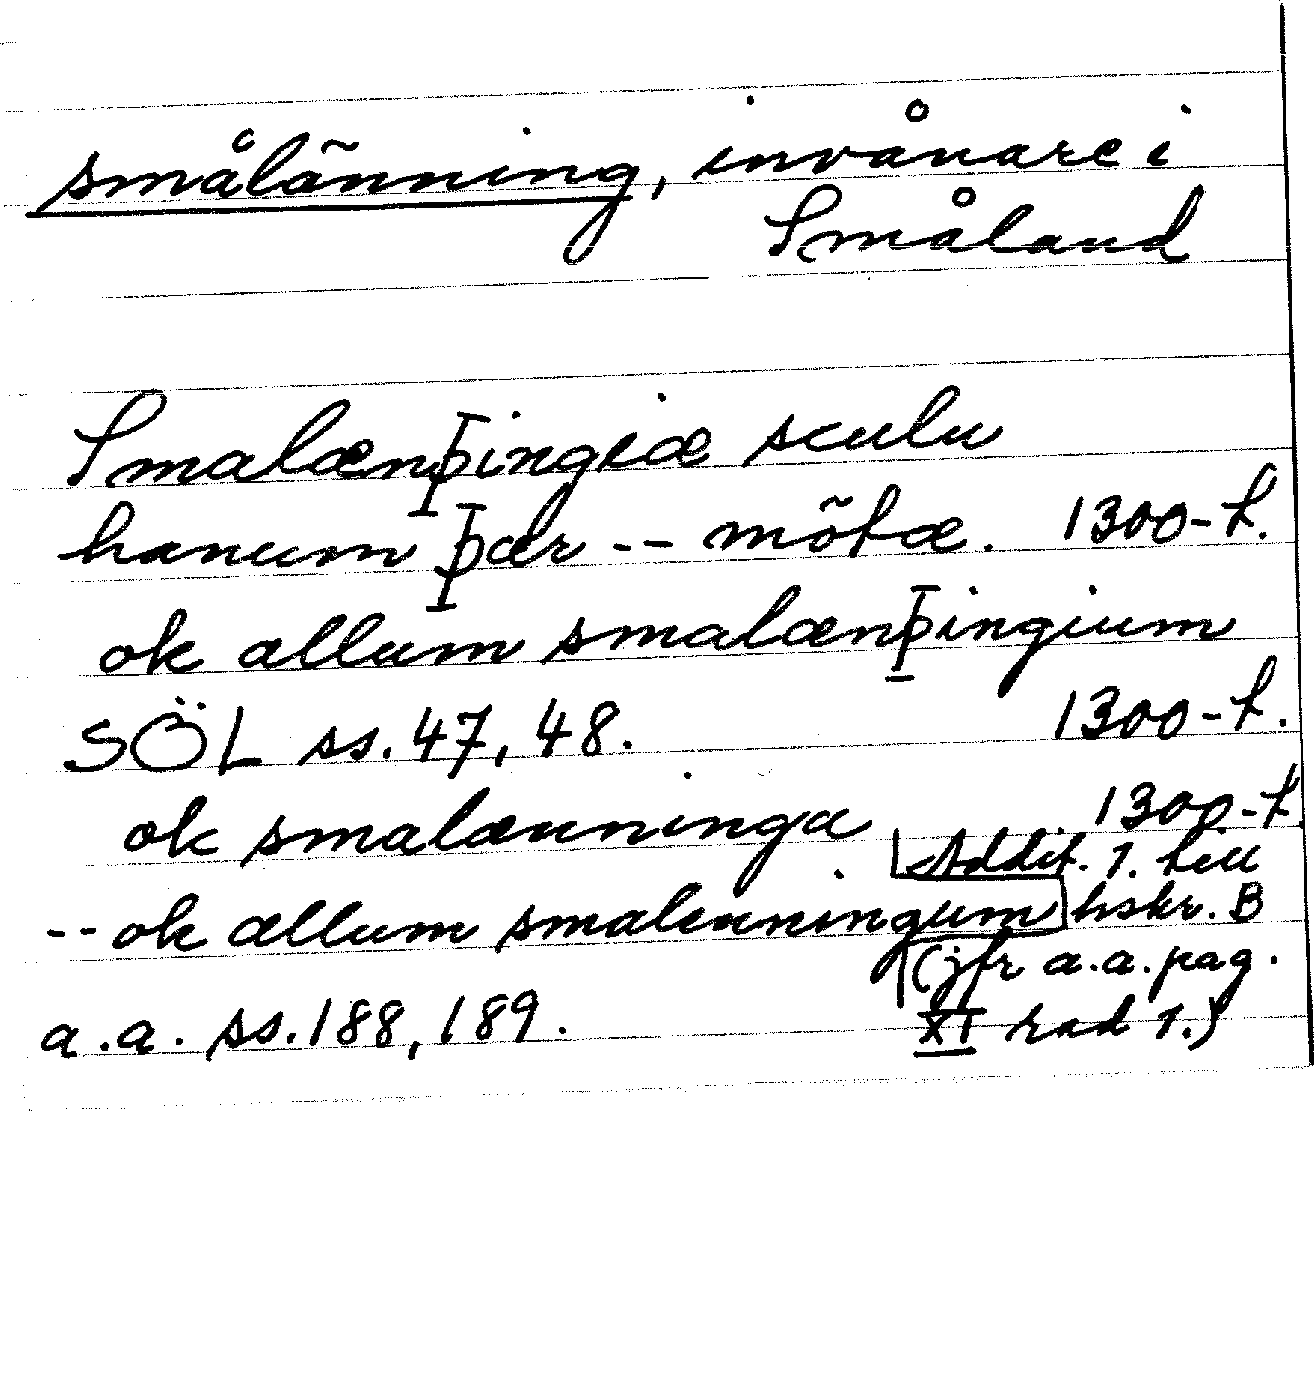 smålänning, invånare i
Småland
Smalænþingiæ sculu
hanum þær -- mötæ. 1300-t.
ok allum smalænþingium
SÖL ss. 47, 48. 1300-t.
ok smalænninga 1300-t.
Addit. 1. till
-- ok allum smalenningum hskr. B
(jfr a.a. pag.
a.a. ss. 188, 189. XI rad 1.)